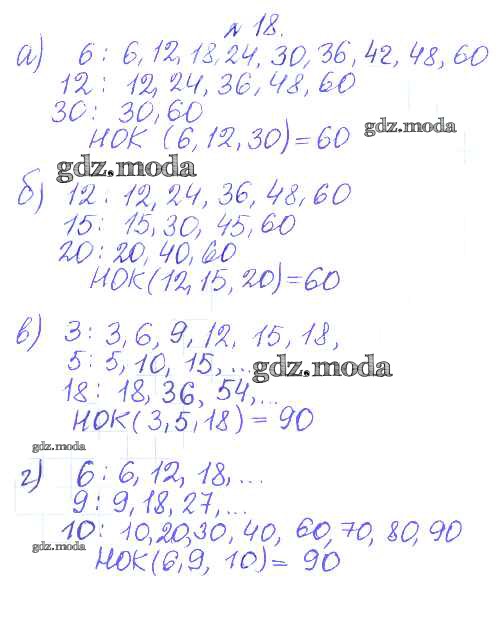 № 18.
а) 6: 6, 12, 18, 24, 30, 36, 42, 48, 60
12: 12, 24, 36, 48, 60
30: 30, 60
НОК (6, 12, 30) = 60
gdz.moda
gdz.moda
б) 12: 12, 24, 36, 48, 60
15: 15, 30, 45, 60
20: 20, 40, 60
НОК (12, 15, 20) = 60
в) 3: 3, 6, 9, 12, 15, 18,
5: 5, 10, 15, ...
gdz.moda
18: 18, 36, 54, ...
НОК (3, 5, 18) = 90
gdz.moda
г) 6: 6, 12, 18, ...
9: 9, 18, 27, ...
10: 10, 20, 30, 40, 60, 70, 80, 90
gdz.moda
НОК (6, 9, 10) = 90